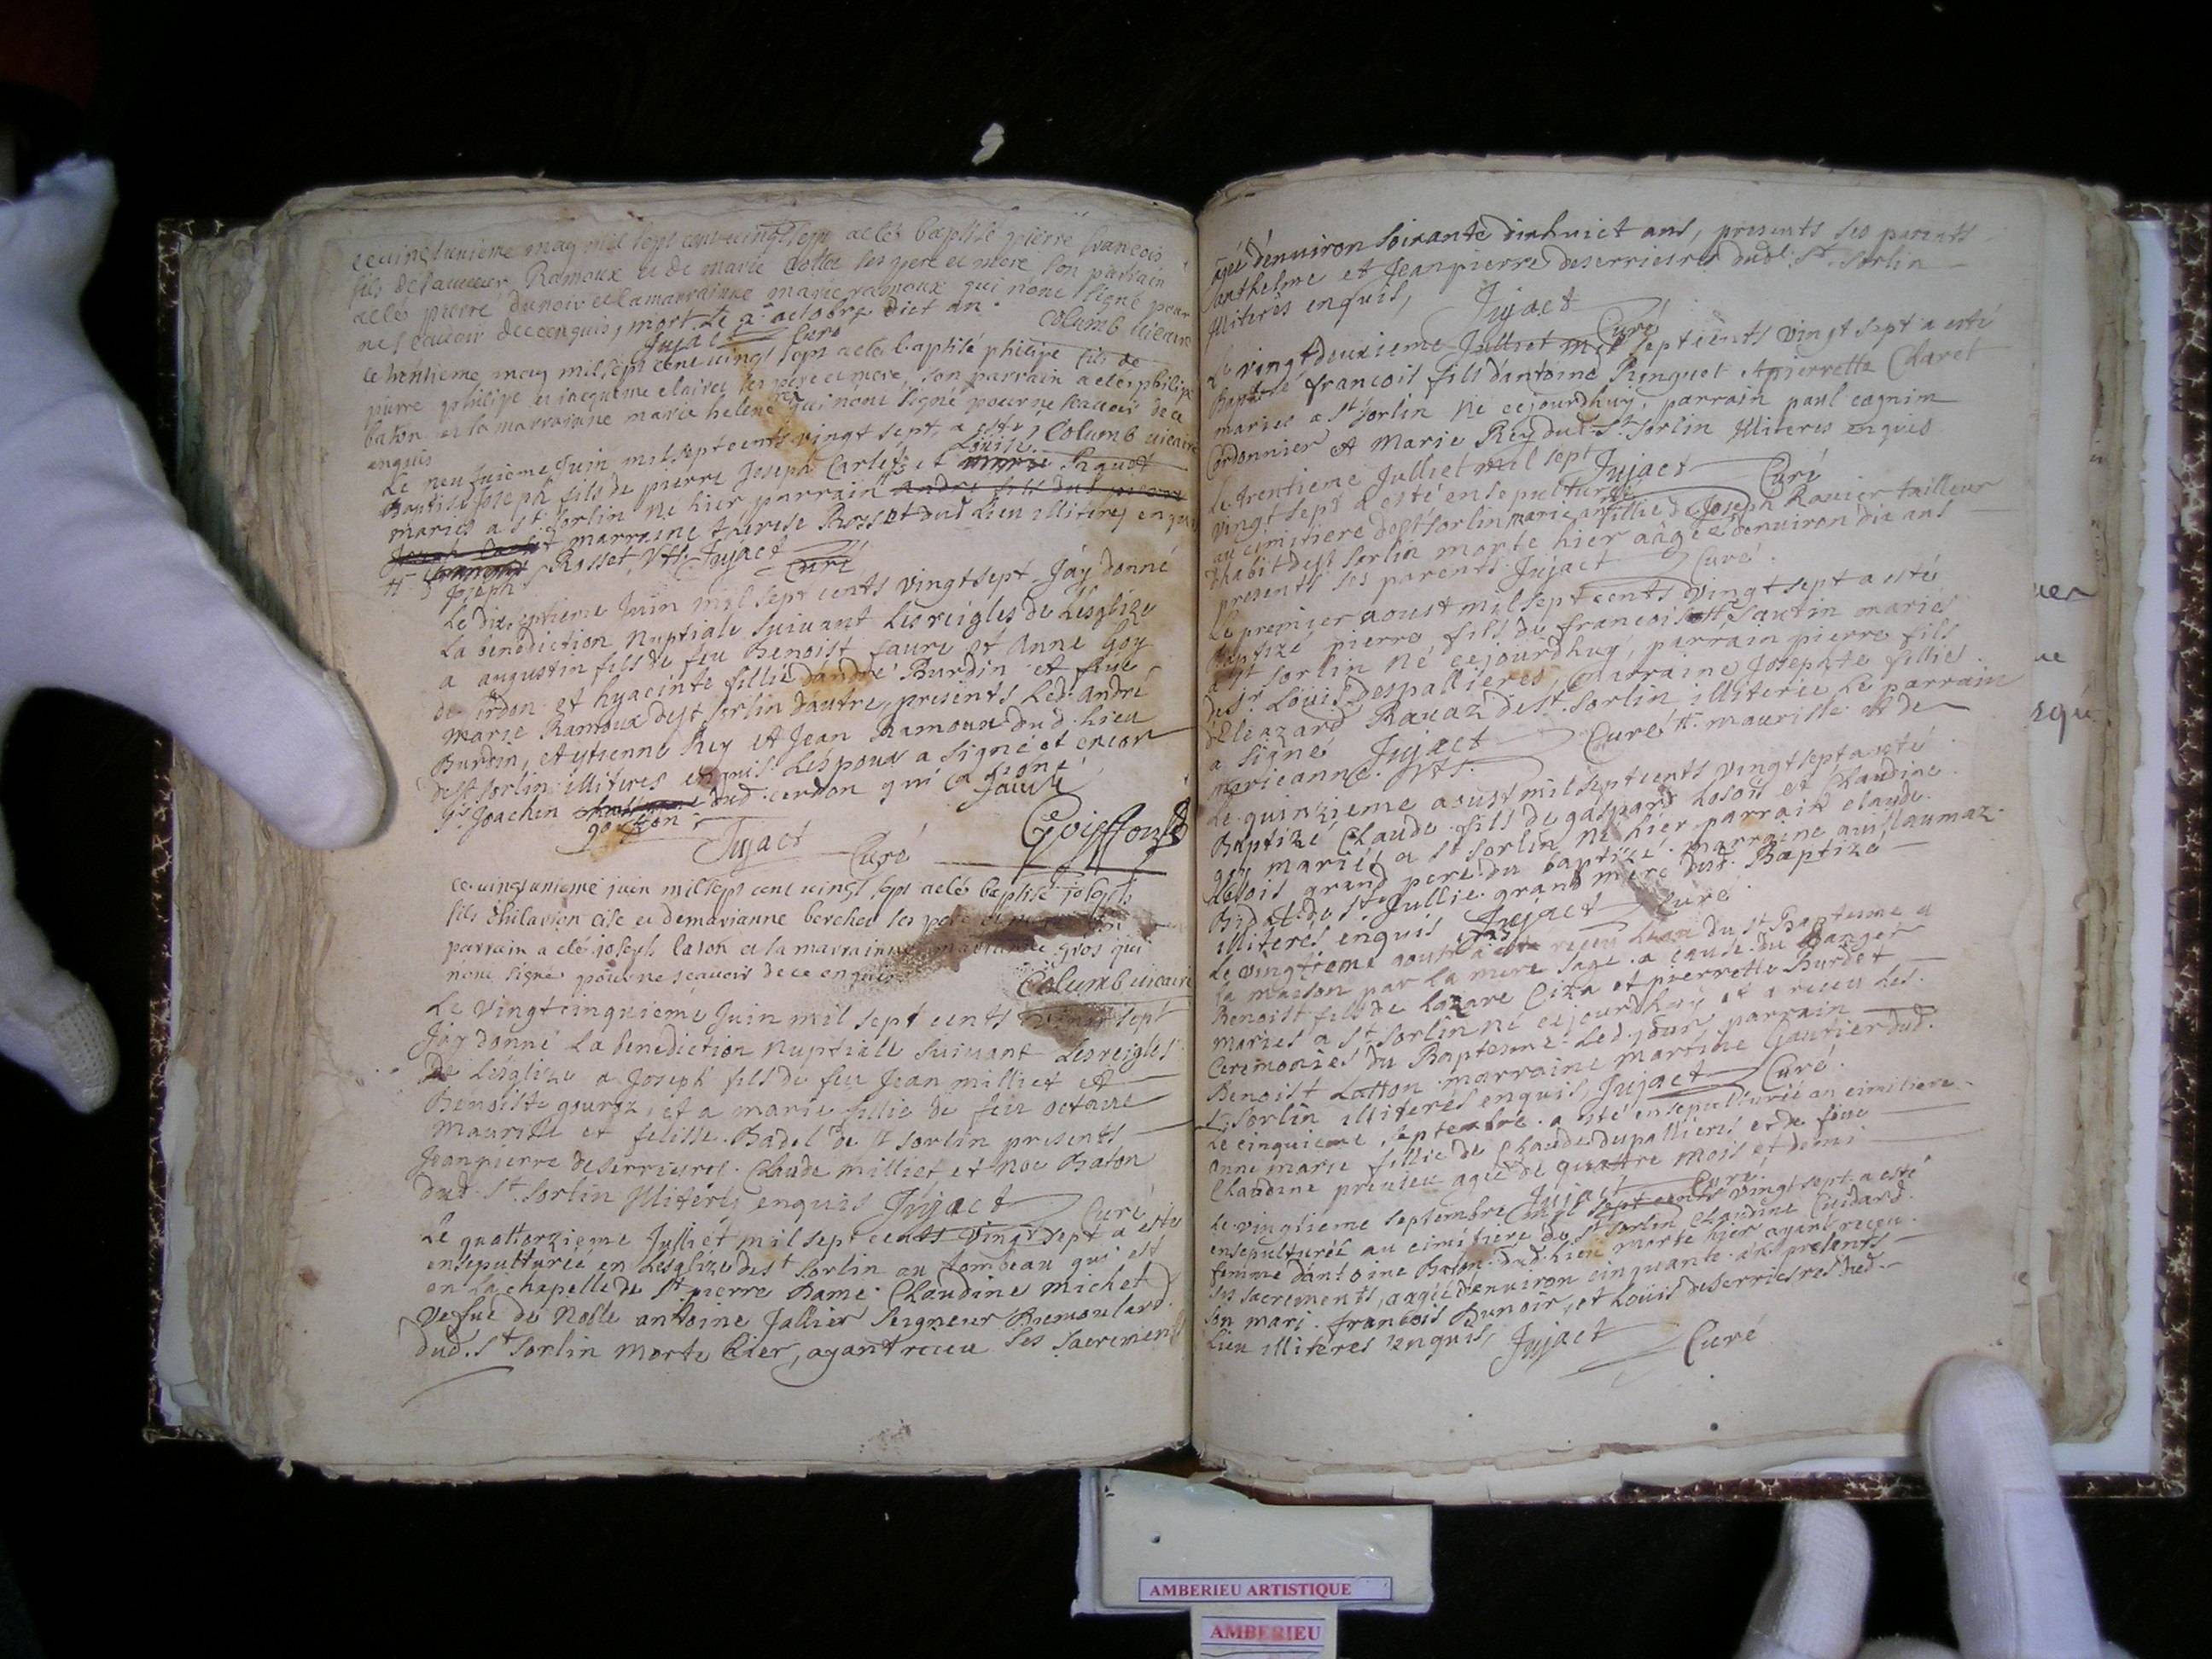 ce vingtunieme may mil sept cent vingt sept a eté baptisé pierre francois
fils de Ramoux et de marie ses pere et mere son parrain
a eté pierre dunoir et la marrainne marie ramoux qui nont signé pour
ne scavoir de ce enquis, mort le 2e octobre dict an Columb vicaire
Jujact Curé
ce trentieme may mil sept cent vingt sept a eté baptisé philipe fils de
pierre philipe et jacqueme claret ses pere et mere, son parrain a eté philipe
baton et la marrainne marie helene qui nont signé pour ne scavoir de ce
enquis Columb vicaire
Le neufvieme Juin mil sept cents vingt sept, a esté
Baptisé Joseph fils de pierre Joseph Carlet et Louise Piquet
mariés a St Sorlin né hier parrain
et marraine therese Rosset dud lieu illiteres enquis
Joseph Rosset, vts. Jujact Curé
Le dixseptieme Juin mil sept cents vingt sept Jáy donné
La benediction Nuptiale Suivant Les reigles de L'esglize
a augustin fils de feu Benoist faure et Anne Goy
de cerdon et hyacinte fillie d'andré Burdin et feüe
Marie Ramoux de St Sorlin d'autre, presents Led. André
Burdin, et ytienne Rey et Jean Ramoux dud. Lieu
de St Sorlin illiteres enquis. L'espoux a signé et encor
Sr. Joachen goiffon dud. cerdon qui a signé
faure
Jujact Curé Goiffon
ce vingtunieme juin mil sept cent vingt sept a eté baptisé joseph
fils d'hilarion cise et de marianne berchet ses pere et mere son
parrain a eté joseph laton et la marrainne gros qui
nont signé pour ne scavoir de ce enquis Columb vicaire
Le Vingtcinquieme Juin mil sept cents vingt sept
Jáy donné La benediction Nuptiale Suivant Les reigles
de L'esglize a Joseph fils de feu Jean milliet et
Benoiste gouroz, et a marie fillie de feu octavie
Maurille et felisse Badel de St Sorlin presents
Jeanpierre deserrieres. Claude milliet et Noe Baton
dud. St. Sorlin Illiterés enquis Jujact Curé
Le quattorzieme Julliet mil sept cents vingt sept a esté
ensepulturée en L'esglize de St Sorlin au tombeau qui est
en la chapelle de St pierre Dame Claudine Michet
vefue de Noble anthoine Jallier Seigneur
dud. St Sorlin morte hier, ayant receu Ses Sacrements
agée d'enuiron Soixante dixhuict ans, presents ses parents
anthelme et Jeanpierre deserrieres dud. St. Sorlin
illiterés enquis, Jujact Curé
Le vingtdeuxieme Julliet mil septcents vingt sept a esté
Baptisé francois fils dantoine Ringuet et pierrette Claret
mariés a St Sorlin Né cejourdhuy, parrain paul cagnin
Cordonnier et Marie Rey dud. St. Sorlin Illiteres enquis
Jujact Curé
Le trentieme Julliet mil sept
vingt sept a esté ensepulturée
au cimitiere de St Sorlin marie anne fillie de Joseph Ravier tailleur
d'habit de St Sorlin morte hier aâgée d'enuiron dix ans
presents ses parents Jujact Curé.
Le premier aoust mil sept cents vingt sept a esté
Baptizé pierre fils de francois Sautin mariés
a St Sorlin Né cejourdhuy, parrain pierre fils
de Sr. Loüis despallieres, Marraine Josephte fillie
d'Eleazard Ravaz de St. Sorlin illiterée Le parrain
a signé Jujact Curé #. maurille et de
marieanne. vts.
Le quinzieme aoust mil sept cents vingt sept a esté
Baptizé Claude fils de gaspard Losois et Claudine
goy mariés a St Sorlin Né hier parrain claude
Losois grand pere du baptizé marraine
Bidal de St Jullie grand mere dud. Baptizé
illiterés enquis Jujact Curé
Le vingtieme aoust a receu L'eau du St Bapteme a
La maison par La mere Sage a cause du Danger
Benoist fils de Lazare Ciza et pierrette Burdet
mariés a St Sorlin né cejourdhuy et a receu les
Ceremonies du Bapteme Led. jour parrain
Benoist Latton marraine Martine Gaurier dud.
St Sorlin illiterés enquis Jujact Curé.
Le cinquieme Septembre a esté ensepulturée au cimitiere
Anne marie fillie de Claude dupallieres et de feue
Claudine preuieu agée de quattre mois et demi
Jujact Curé.
Le vingtieme Septembre mil sept cents vingt sept a esté
ensepulturée au cimitiere de St Sorlin Claudine Cuidard
femme d'antoine Baton dud. Lieu morte hier ayant receu
Ses Sacrements, aagée d'enuiron cinquante ans presents
Son mari. francois Dunoir, et Loüis deserrieres dud.
Lieu illiteres enquis, Jujact Curé
AMBERIEU ARTISTIQUE
AMBERIEU